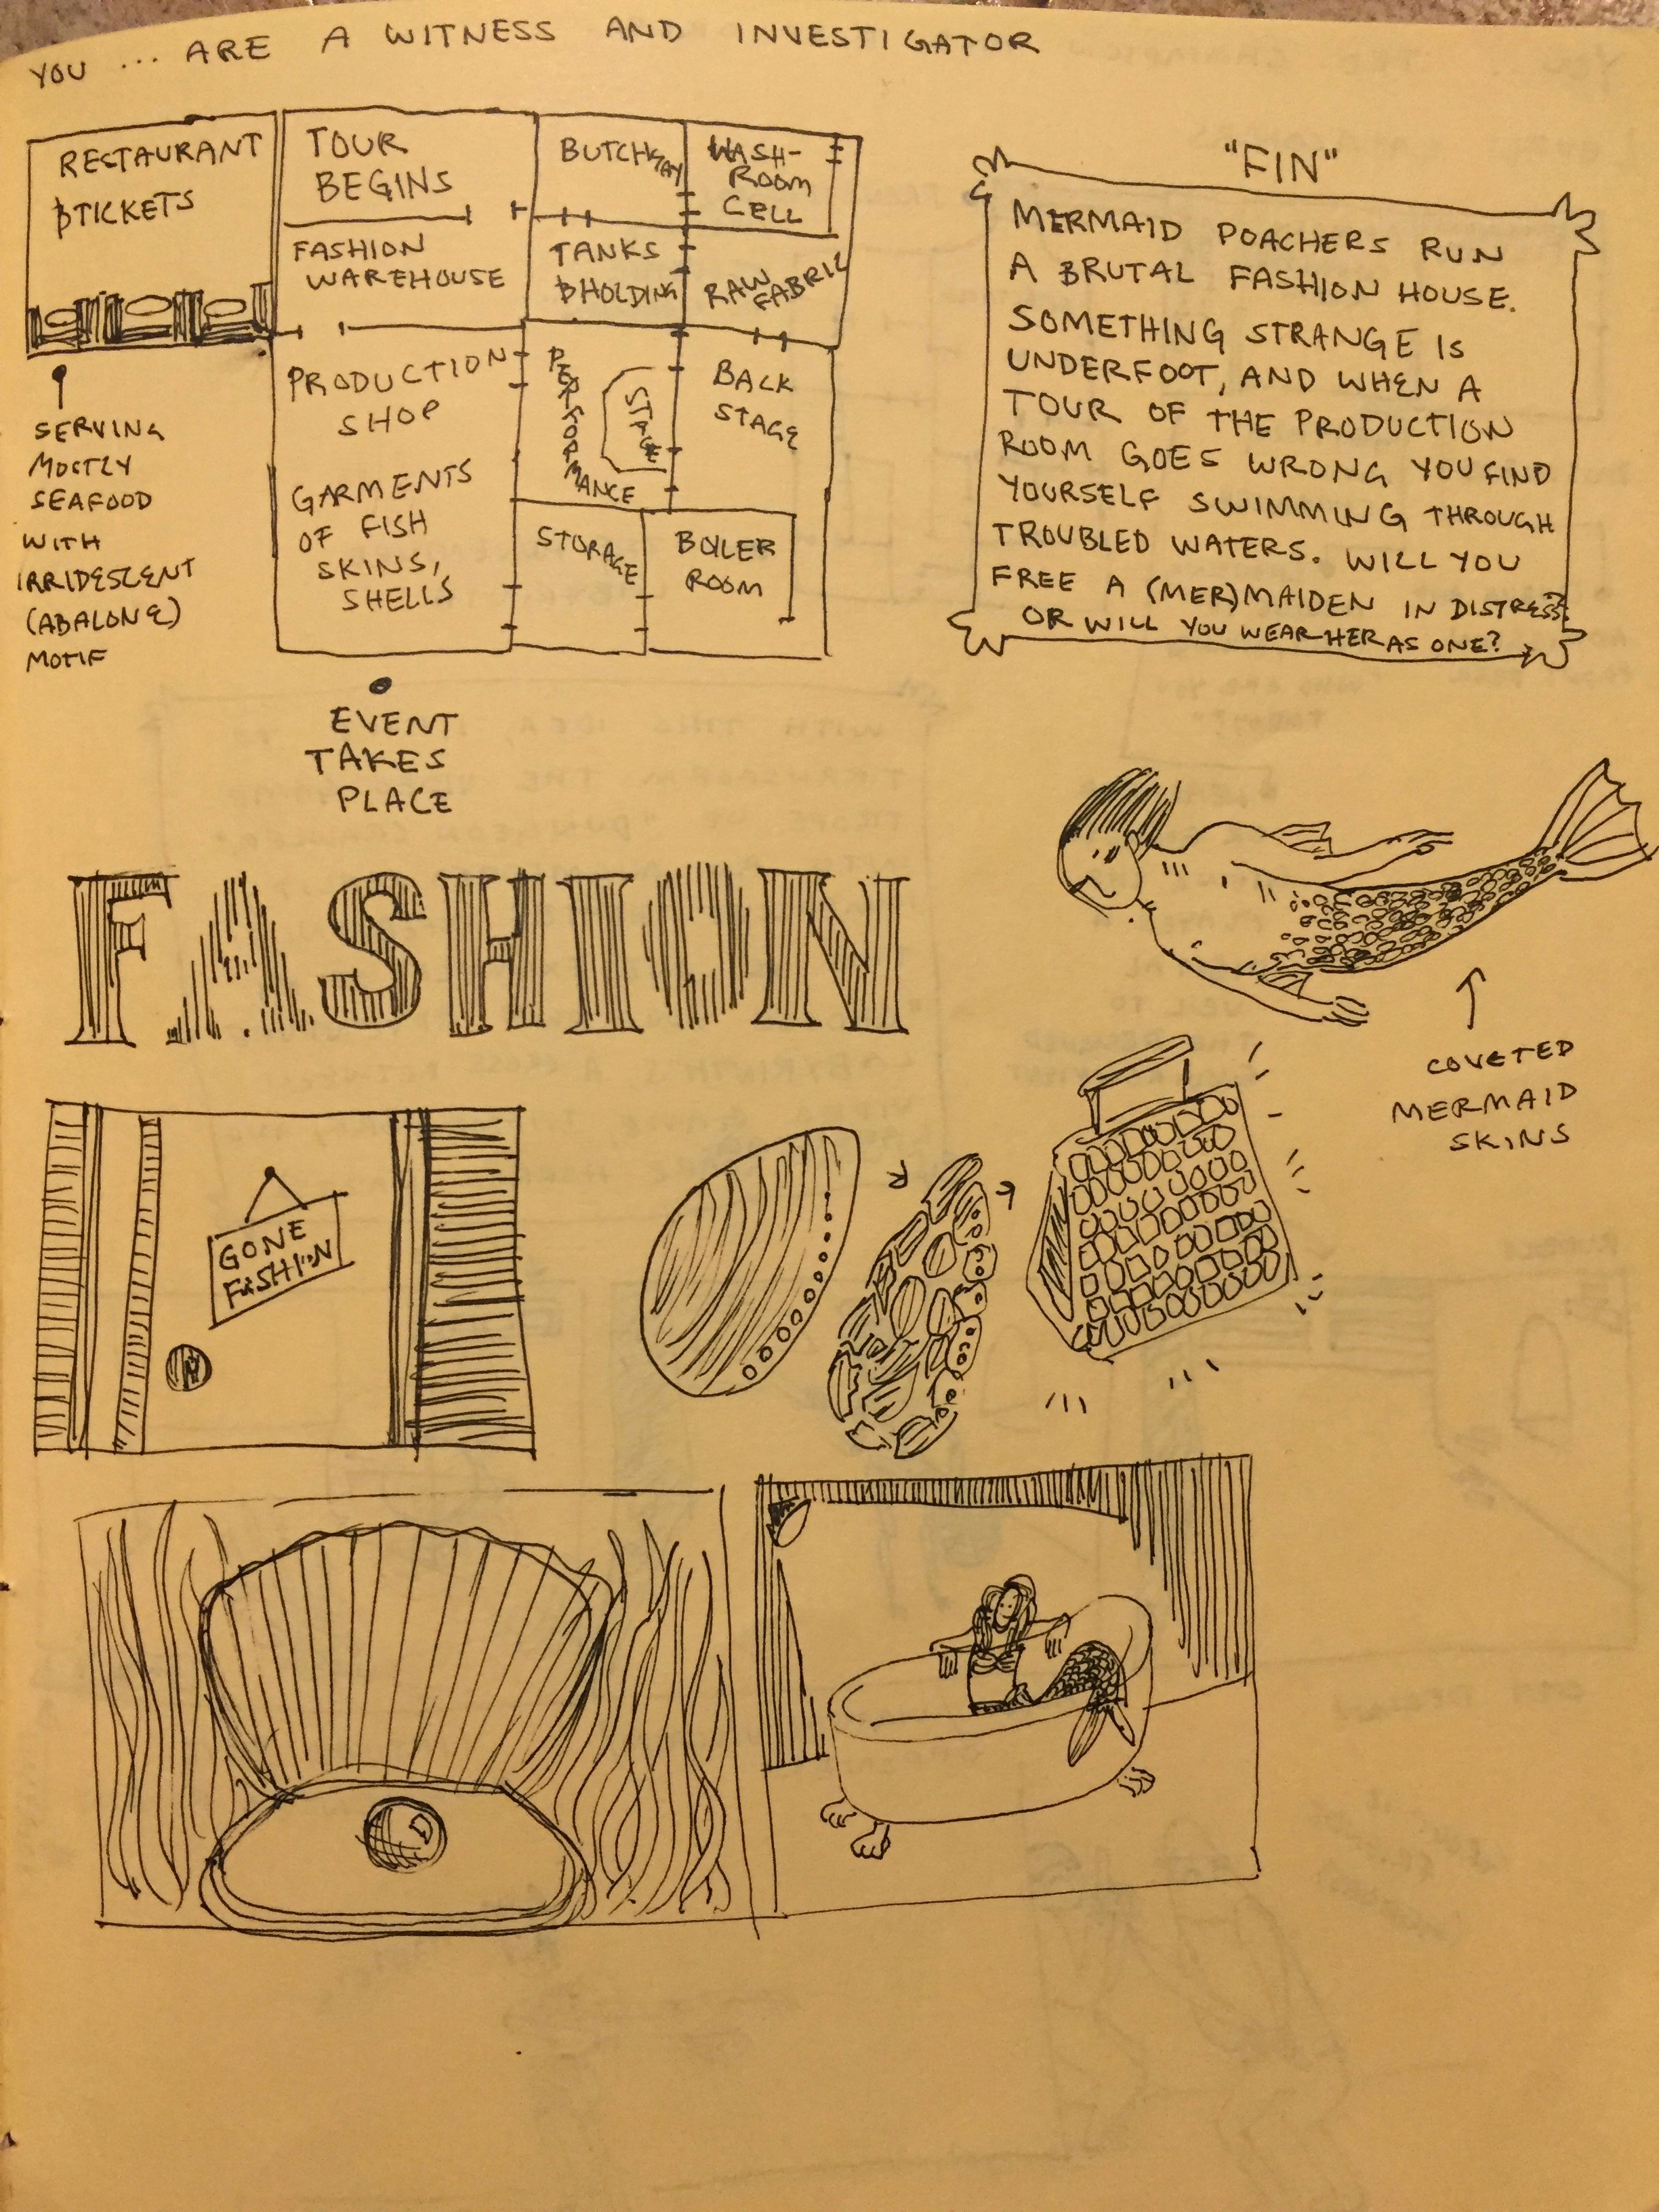 YOU ... ARE A WITNESS AND INVESTIGATOR
RESTAURANT
& TICKETS
TOUR
BEGINS
WASH-
ROOM
CELL
FASHION
WAREHOUSE
TANKS
& HOLDING
RAW
FABRIC
PRODUCTION
SHOP
GARMENTS
OF FISH
SKINS,
SHELLS
PERFORMANCE
STAGE
BACK
STAGE
STORAGE
BOILER
ROOM
SERVING
MOSTLY
SEAFOOD
WITH
IRRIDESCENT
(ABALONE)
MOTIF
EVENT
TAKES
PLACE
"FIN"
MERMAID POACHERS RUN
A BRUTAL FASHION HOUSE.
SOMETHING STRANGE IS
UNDERFOOT, AND WHEN A
TOUR OF THE PRODUCTION
ROOM GOES WRONG YOU FIND
YOURSELF SWIMMING THROUGH
TROUBLED WATERS. WILL YOU
FREE A (MER)MAIDEN IN DISTRESS?
OR WILL YOU WEAR HER AS ONE?
FASHION
COVETED
MERMAID
SKINS
GONE
FASHION